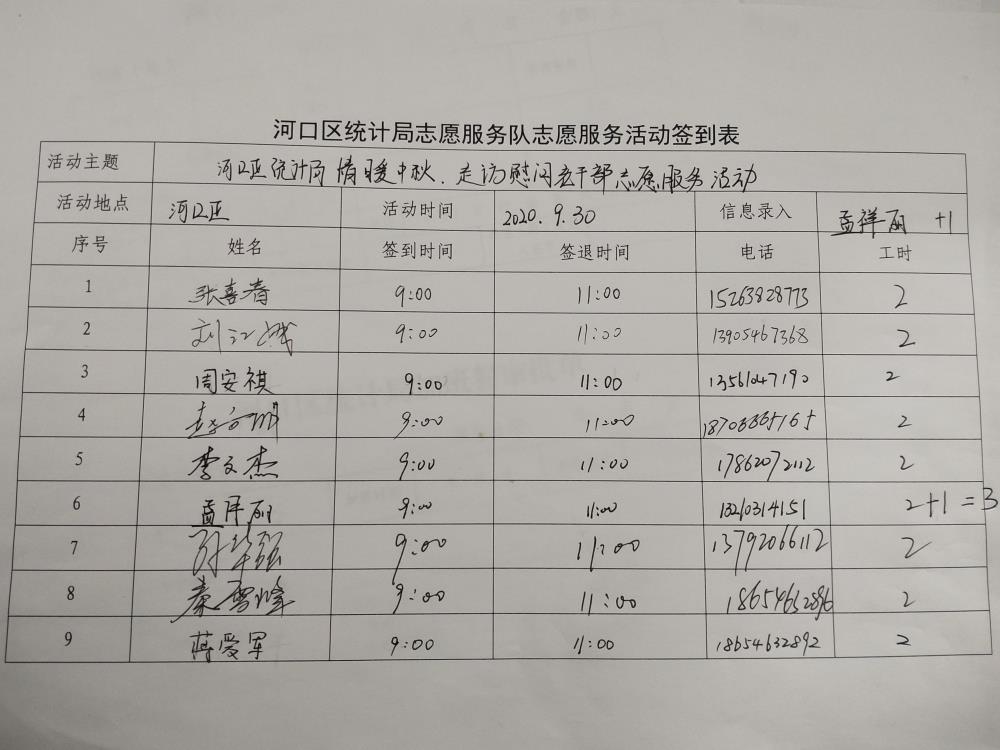 河口区统计局志愿服务队志愿服务活动签到表
活动主题 河口区统计局情暖中秋、走访慰问老干部志愿服务活动
活动地点 河口区 活动时间 2020.9.30 信息录入 孟祥丽 +1
序号 姓名 签到时间 签退时间 电话 工时
1 张喜春 9:00 11:00 15263828773 2
2 刘江城 9:00 11:00 13905467368 2
3 周安祺 9:00 11:00 13561047190 2
4 9:00 11:00 2
5 李文杰 9:00 11:00 17862072112 2
6 孟祥丽 9:00 11:00 13210314151 2+1=3
7 9:00 11:00 13792066112 2
8 秦雪峰 9:00 11:00 18654632896 2
9 蒋爱军 9:00 11:00 18654632892 2